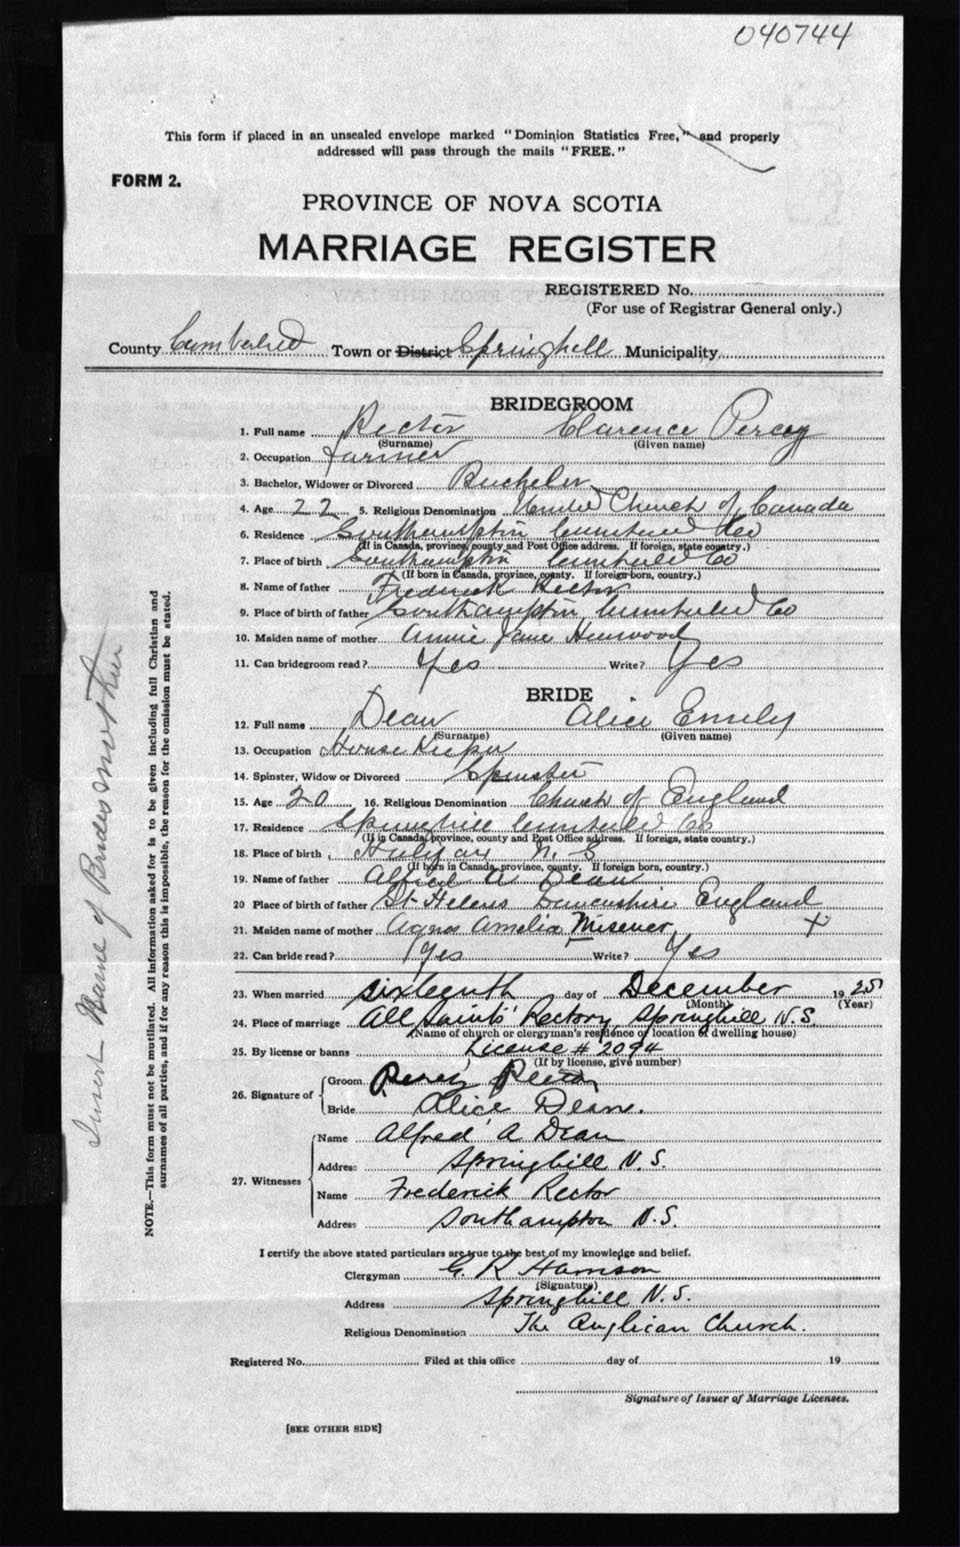 040744
This form if placed in an unsealed envelope marked "Dominion Statistics Free," and properly
addressed will pass through the mails "FREE."
FORM 2.
PROVINCE OF NOVA SCOTIA
MARRIAGE REGISTER
REGISTERED No.
(For use of Registrar General only.)
County Cumberland Town or District Springhill Municipality
BRIDEGROOM
1. Full name Rector Clarence Percy
(Surname) (Given name)
2. Occupation Farmer
3. Bachelor, Widower or Divorced Bachelor
4. Age 22 5. Religious Denomination United Church of Canada
6. Residence Southampton Cumberland Co
(If in Canada, province, county and Post Office address. If foreign, state country.)
7. Place of birth Southampton Cumberland Co
(If born in Canada, province, county. If foreign born, country.)
8. Name of father Frederick Rector
9. Place of birth of father Southampton Cumberland Co
10. Maiden name of mother Annie Jane Henwood
11. Can bridegroom read? Yes Write? Yes
BRIDE
12. Full name Dean Alice Emily
(Surname) (Given name)
13. Occupation House Keeper
14. Spinster, Widow or Divorced Spinster
15. Age 20 16. Religious Denomination Church of England
17. Residence Springhill Cumberland Co
(If in Canada, province, county and Post Office address. If foreign, state country.)
18. Place of birth Halifax N. S
(If born in Canada, province, county. If foreign born, country.)
19. Name of father Alfred A Dean
20 Place of birth of father St Helens England
21. Maiden name of mother Agnes Amelia Misener X
22. Can bride read? Yes Write? Yes
23. When married sixteenth day of December 1925
(Month) (Year)
24. Place of marriage All Saints' Rectory, Springhill N.S.
(Name of church or clergyman's residence or location of dwelling house)
25. By license or banns License # 2094
(If by license, give number)
26. Signature of Groom Percy Rector
Bride Alice Dean.
27. Witnesses Name Alfred A Dean
Address Springhill N.S.
Name Frederick Rector
Address Southampton N.S.
I certify the above stated particulars are true to the best of my knowledge and belief.
Clergyman G. R. Harrison
(Signature)
Address Springhill N.S.
Religious Denomination The Anglican Church.
Registered No. Filed at this office day of 19
Signature of Issuer of Marriage Licenses.
[SEE OTHER SIDE]
NOTE.—This form must not be mutilated. All information asked for is to be given including full Christian and
surnames of all parties, and if for any reason this is impossible, the reason for the omission must be stated.
Insert Name of Brides mother